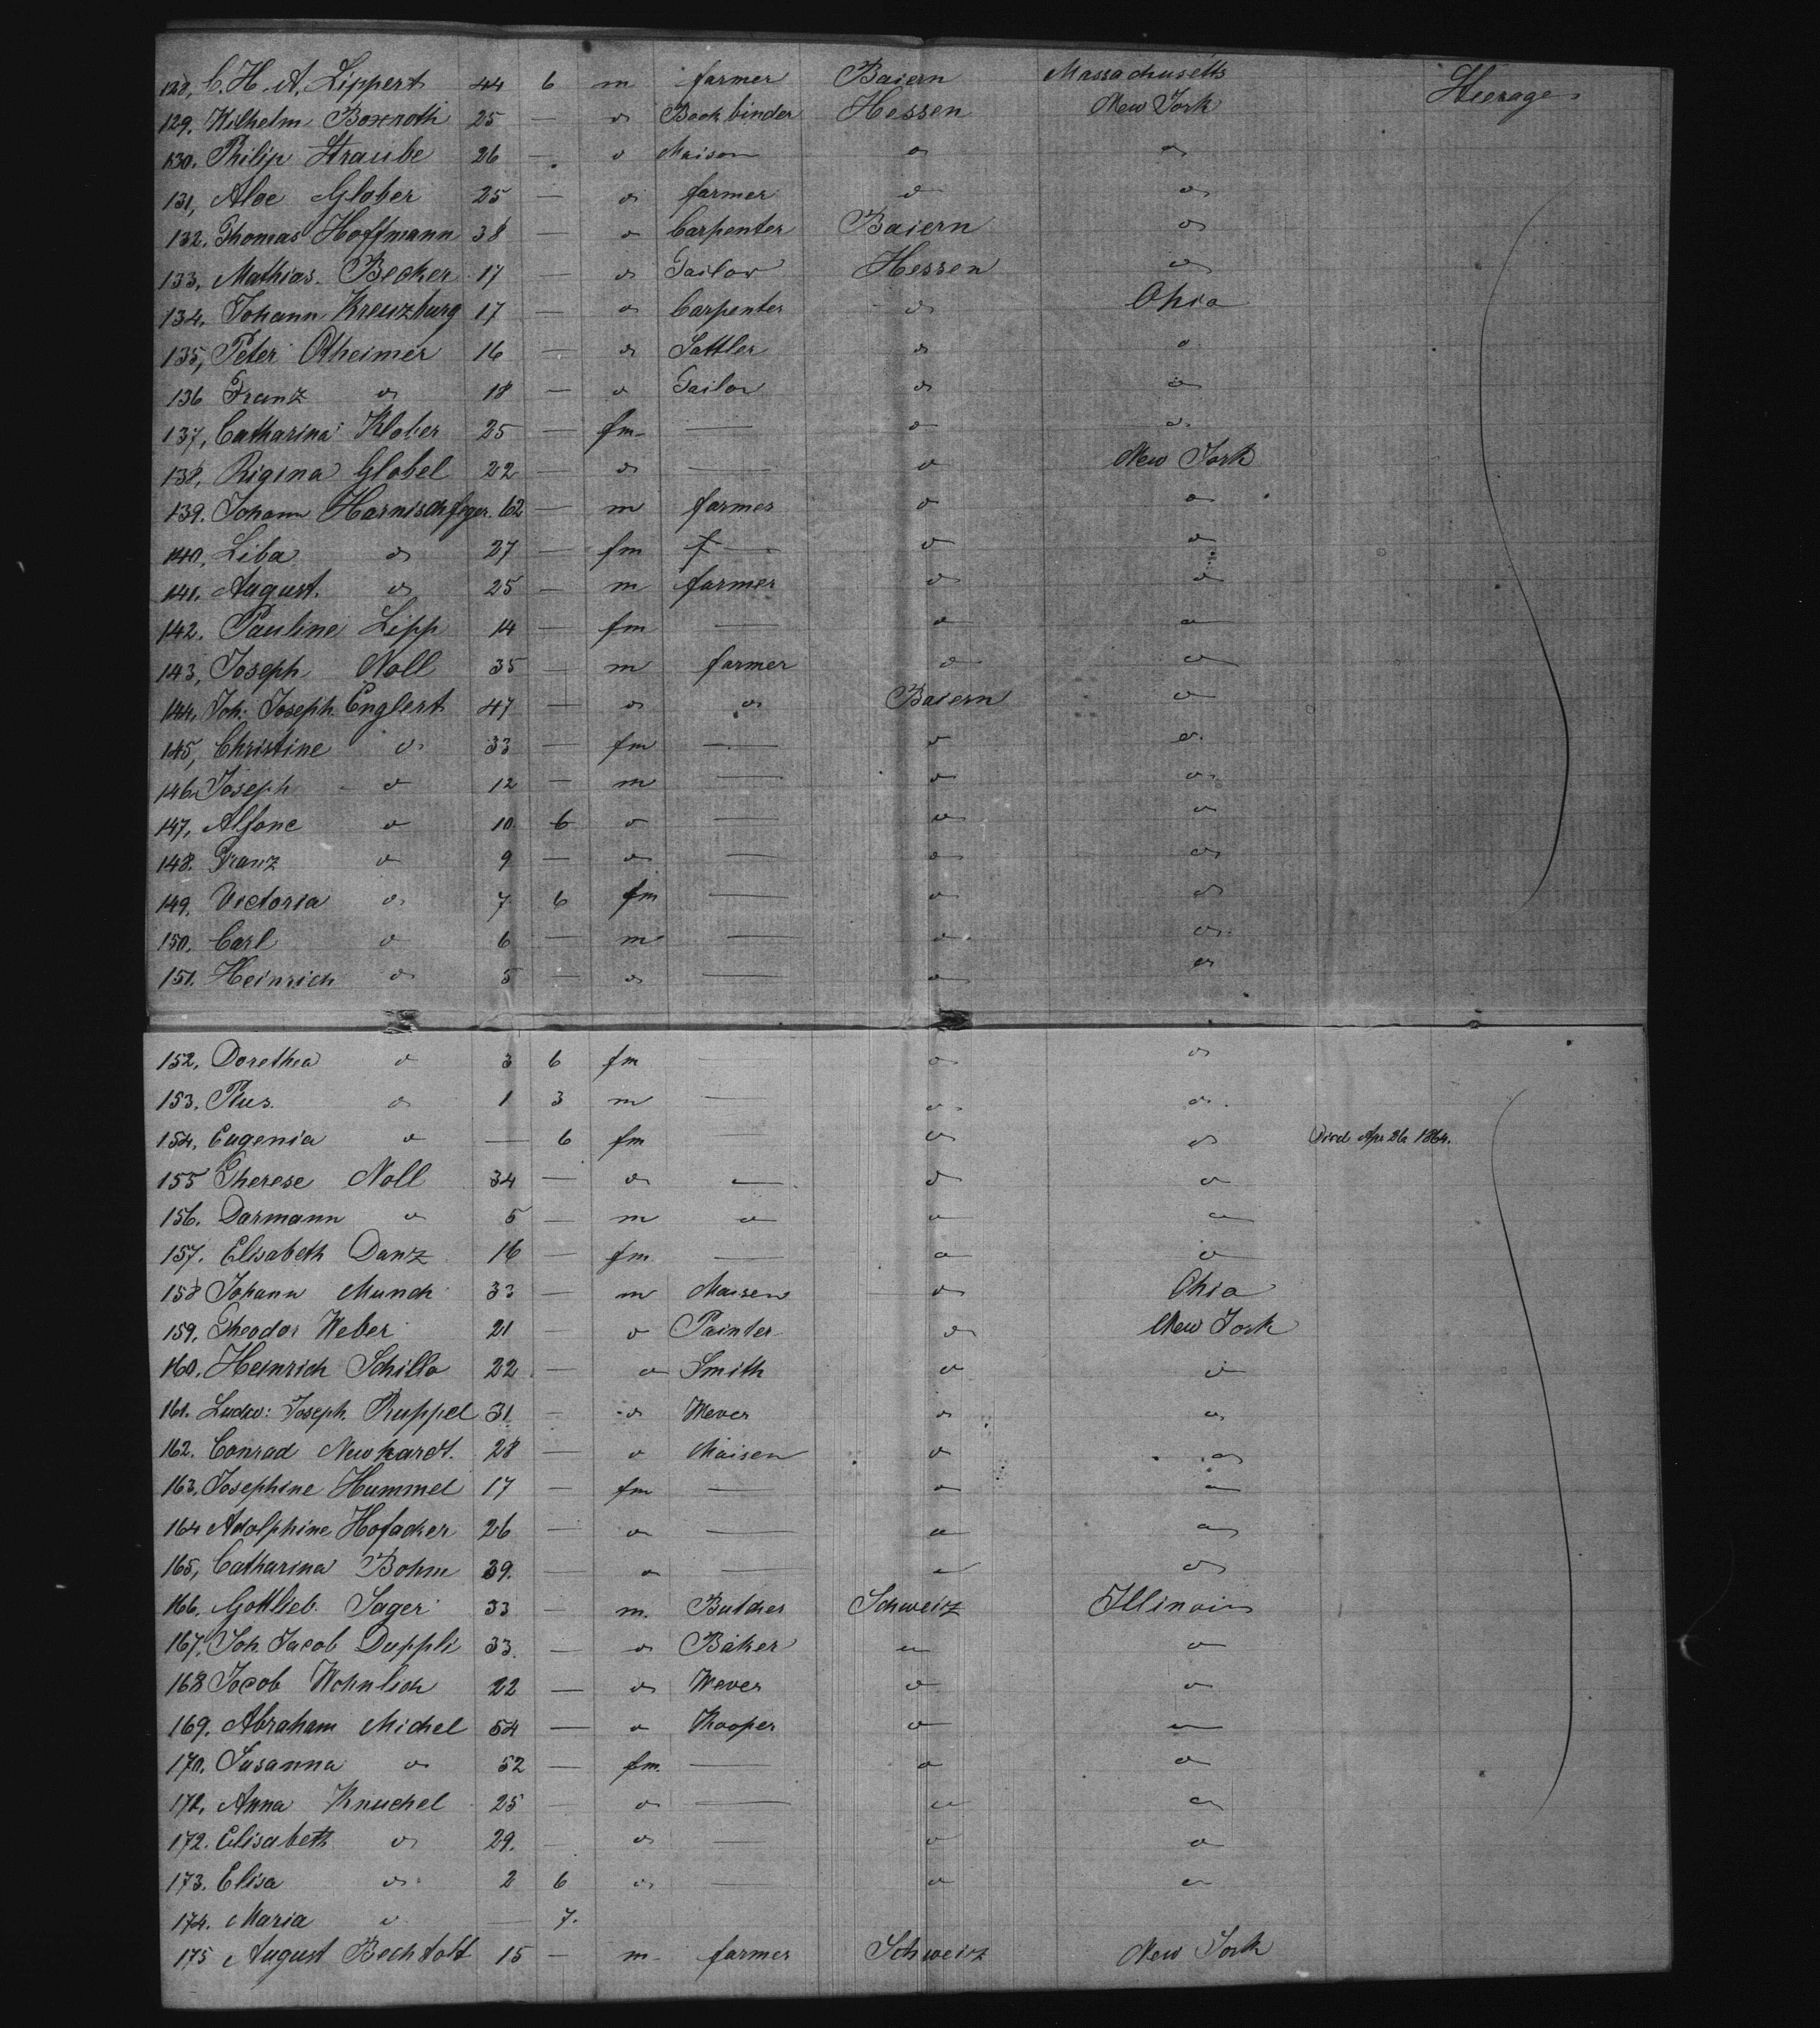 128, C. H. A. Lippert 44 6 m farmer Baiern Massachusetts Steerage
129. Wilhelm Boxroth 25 — do Bookbinder Hessen New York
130. Philip Straube 26 — do Maison do do
131, Aloe Glober 25 — do farmer do do
132. Thomas Hoffmann 38 — do Carpenter Baiern do
133, Mathias Becker 17 — do Tailor Hessen do
134, Johann Kreuzburg 17 — do Carpenter do Ohio
135, Peter Olheimer 16 — do Sattler do do
136 Franz do 18 — do Tailor do do
137, Catharina Klober 25 — fm — do do
138, Rigina Globel 22 — do — do New York
139. Johann Harnischfeger 62 — m farmer do do
140, Liba do 27 — fm — do do
141. August do 25 — m farmer do do
142. Pauline Lipp 14 — fm — do do
143, Joseph Noll 35 — m farmer do do
144, Joh. Joseph Englert 47 — do do Baiern do
145, Christine do 33 — fm — do do
146. Joseph do 12 — m — do do
147, Alfone do 10 6 do — do do
148. Franz do 9 — do — do do
149, Victoria do 7 6 fm — do do
150, Carl do 6 — m — do do
151. Heinrich do 5 — do — do do
152, Dorethea do 3 6 fm — do do
153. Pius do 1 3 m — do do
154, Eugenia do — 6 fm — do do Died Apr 26 1864.
155 Therese Noll 34 — do — do do
156. Darmann do 5 — m do do do
157. Elisabeth Danz 16 — fm — do do
158 Johann Munch 33 — m Maisen do Ohio
159, Theodor Weber 21 do Painter do New York
160. Heinrich Schillo 22 — do Smith do do
161. Ludw: Joseph Ruppel 31 — do Wever do do
162. Conrad Newhardt 28 — do Maisen do do
163, Josephine Hummel 17 — fm — do do
164 Adolphine Hofacker 26 — do — do do
165, Catharina Bohm 39. — do — do do
166, Gottlieb Sager 33 — m. Butcher Schweiz Illinois
167, Joh. Jacob Duppli 33. — do Baker do do
168 Jacob Wohnlich 22 — do Wever do do
169. Abraham Michel 54 — do Kooper do do
170, Susanna do 52 — fm. — do do
171, Anna Knuchel 25 — do — do do
172. Elisabeth do 29. — do — do do
173. Elisa do 2 6 do — do do
174. Maria do — 7.
175 August Bechtolt 15 — m farmer Schweiz New York